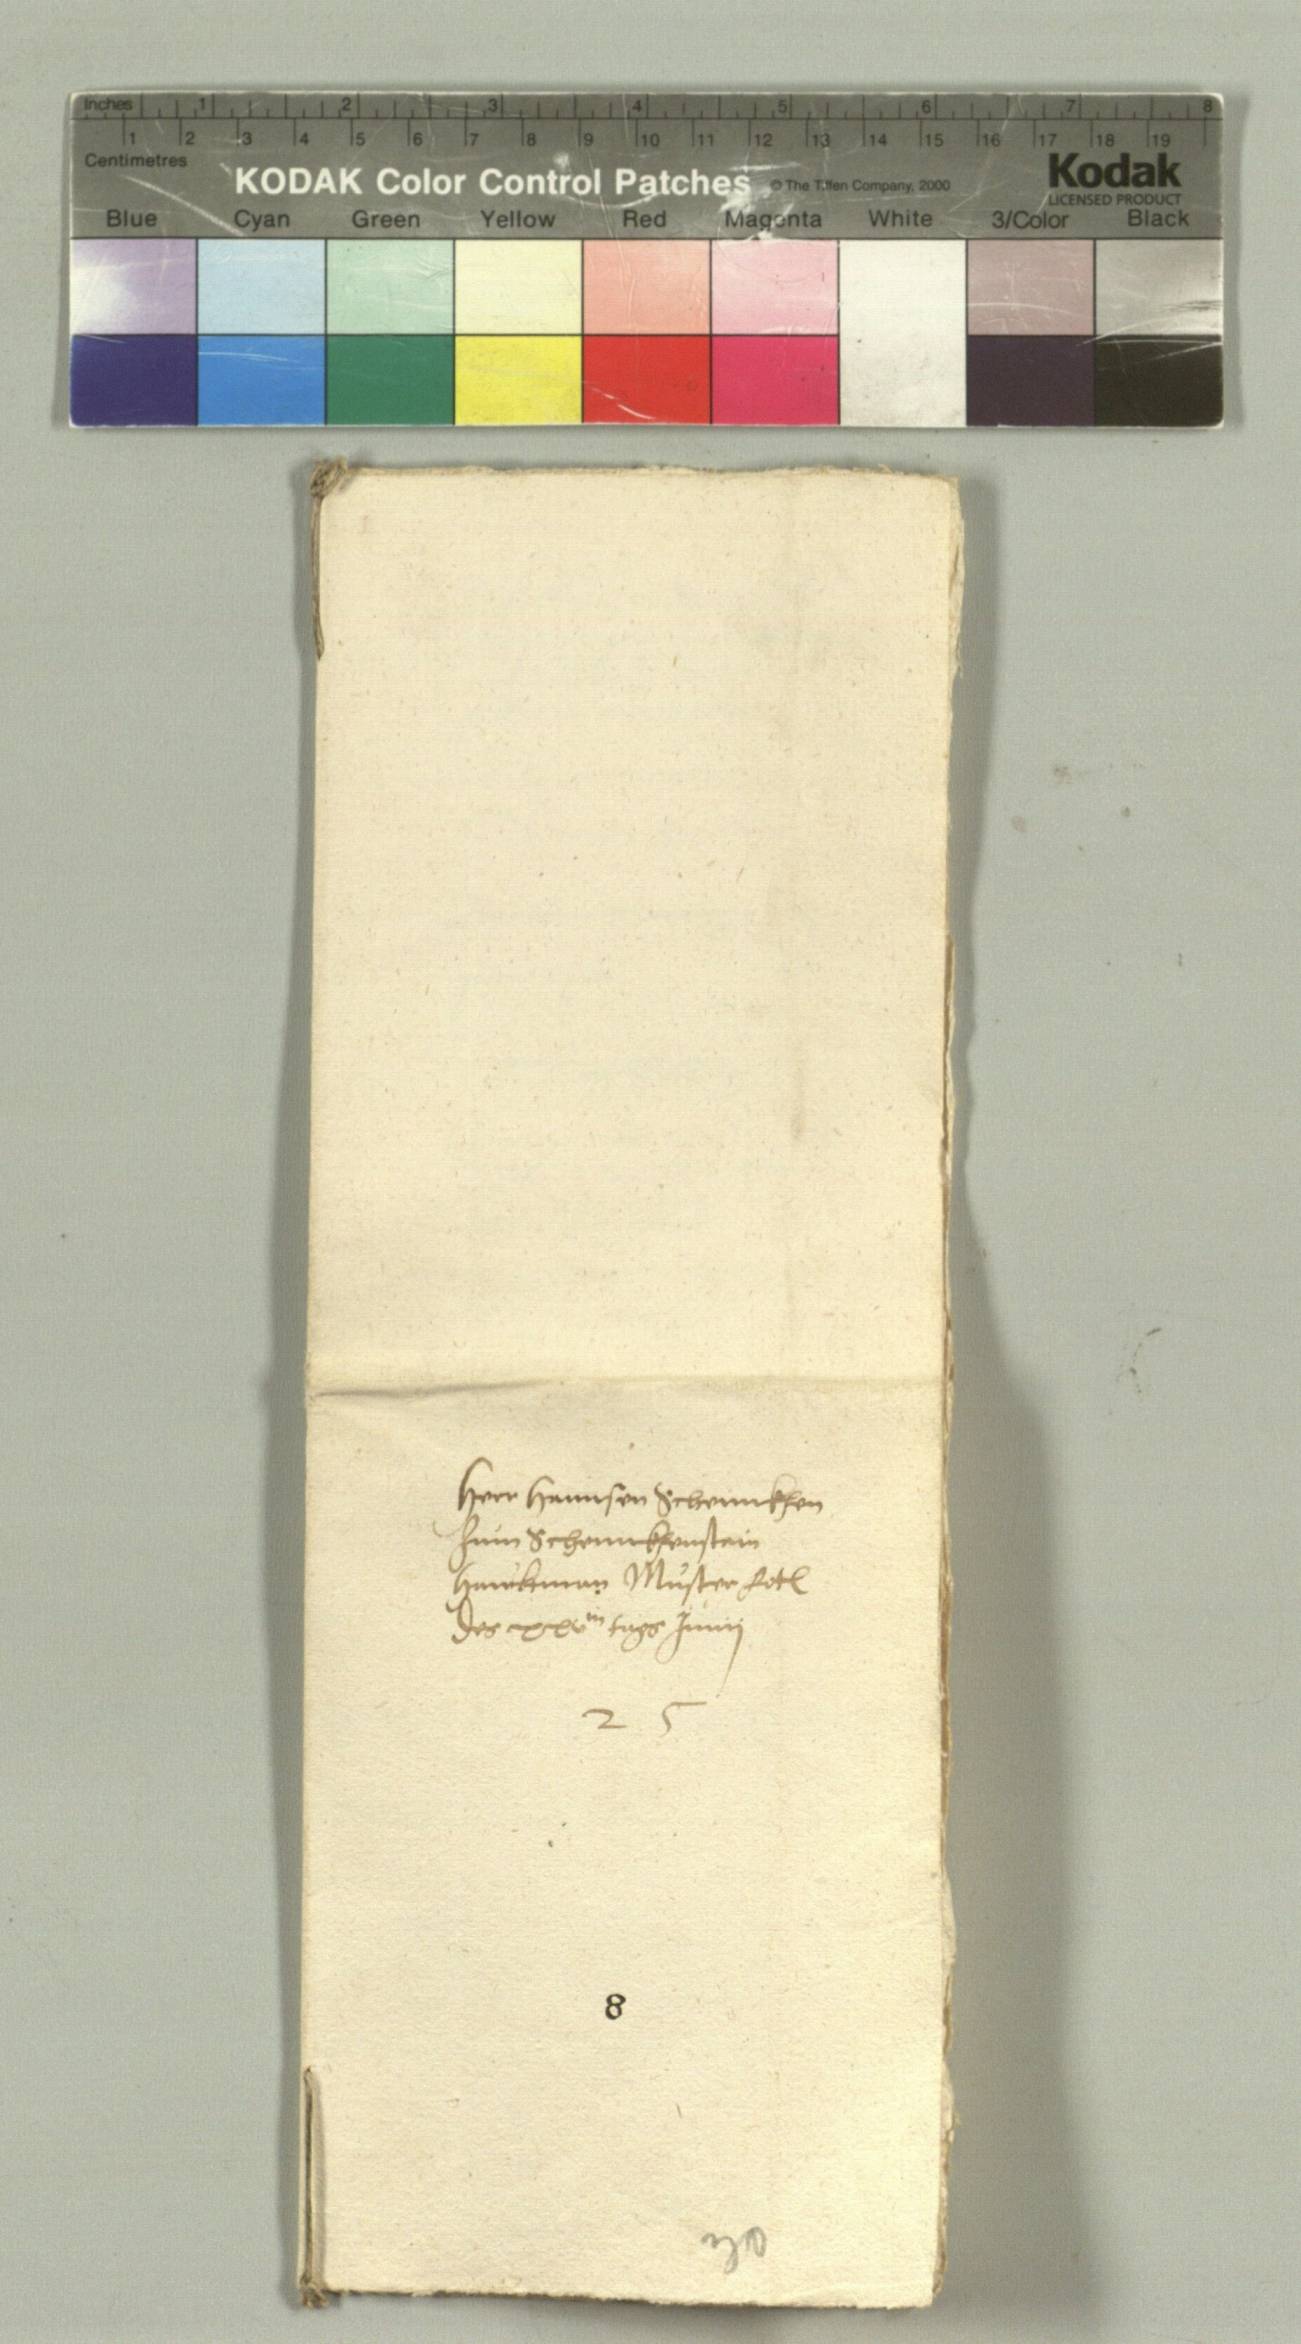 Inches 1 2 3 4 5 6 7 8
1 2 3 4 5 6 7 8 9 10 11 12 13 14 15 16 17 18 19
Centimetres
KODAK Color Control Patches © The Tiffen Company, 2000 Kodak
LICENSED PRODUCT
Blue Cyan Green Yellow Red Magenta White 3/Color Black
Herr Hannsen Schennckhen
zum Schennckhenstain
Haubtman Muster Zetl
des xxv tags Junij
2 5
8